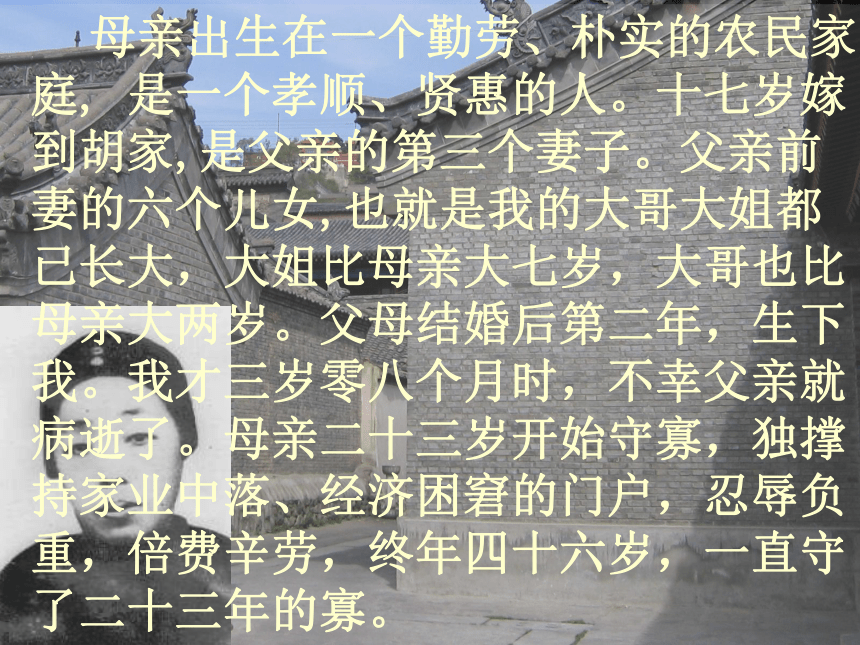 母亲出生在一个勤劳、朴实的农民家
庭, 是一个孝顺、贤惠的人。十七岁嫁
到胡家,是父亲的第三个妻子。父亲前
妻的六个儿女,也就是我的大哥大姐都
己长大，大姐比母亲大七岁，大哥也比
母亲大两岁。父母结婚后第二年，生下
我。我才三岁零八个月时，不幸父亲就
病逝了。母亲二十三岁开始守寡，独撑
持家业中落、经济困窘的门户，忍辱负
重，倍费辛劳，终年四十六岁，一直守
了二十三年的寡。